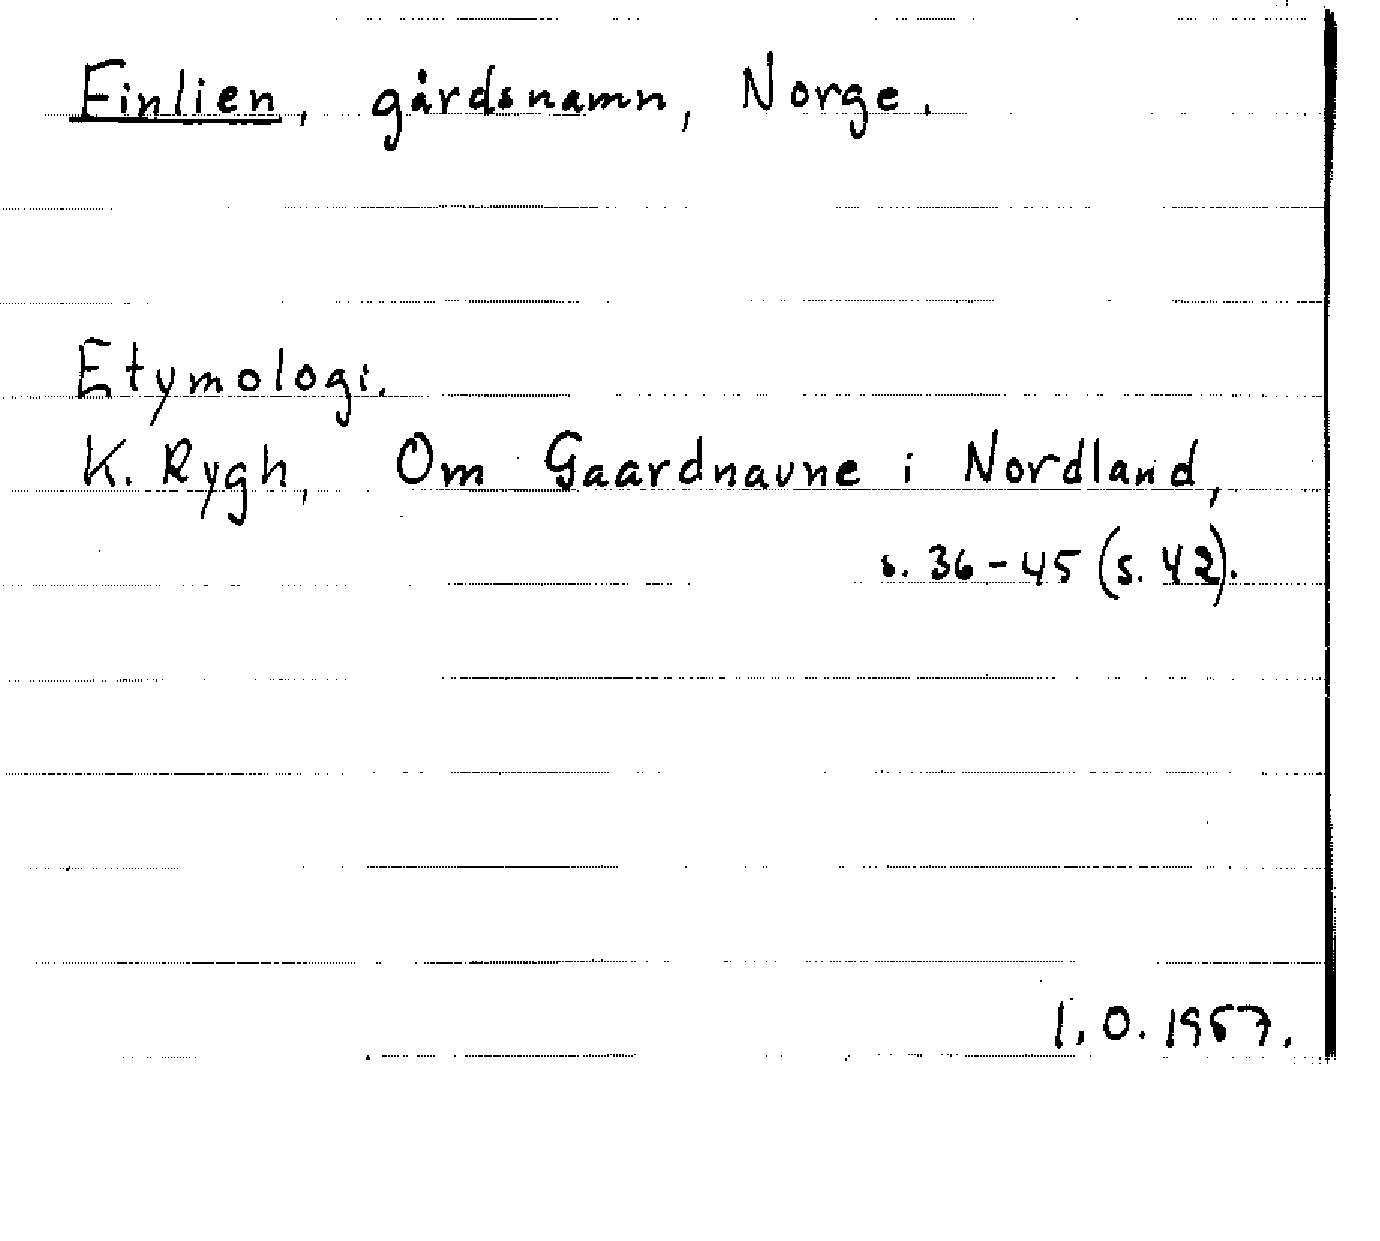 Finlien, gårdsnamn, Norge.
Etymologi.
K. Rygh, Om Gaardnavne i Nordland,
s. 36-45 (s. 42).
I. O. 1957.